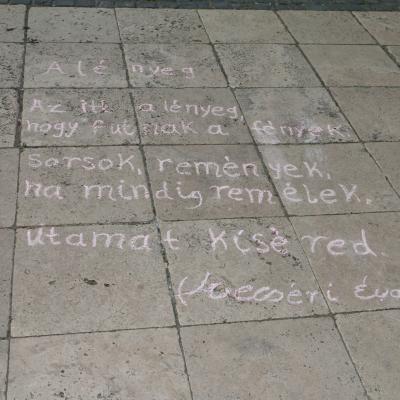 A lényeg
Az itt a lényeg,
hogy futnak a fények.
sorsok, remények,
ha mindig remélek.
utamat kisèred.
(Vecséri Éva